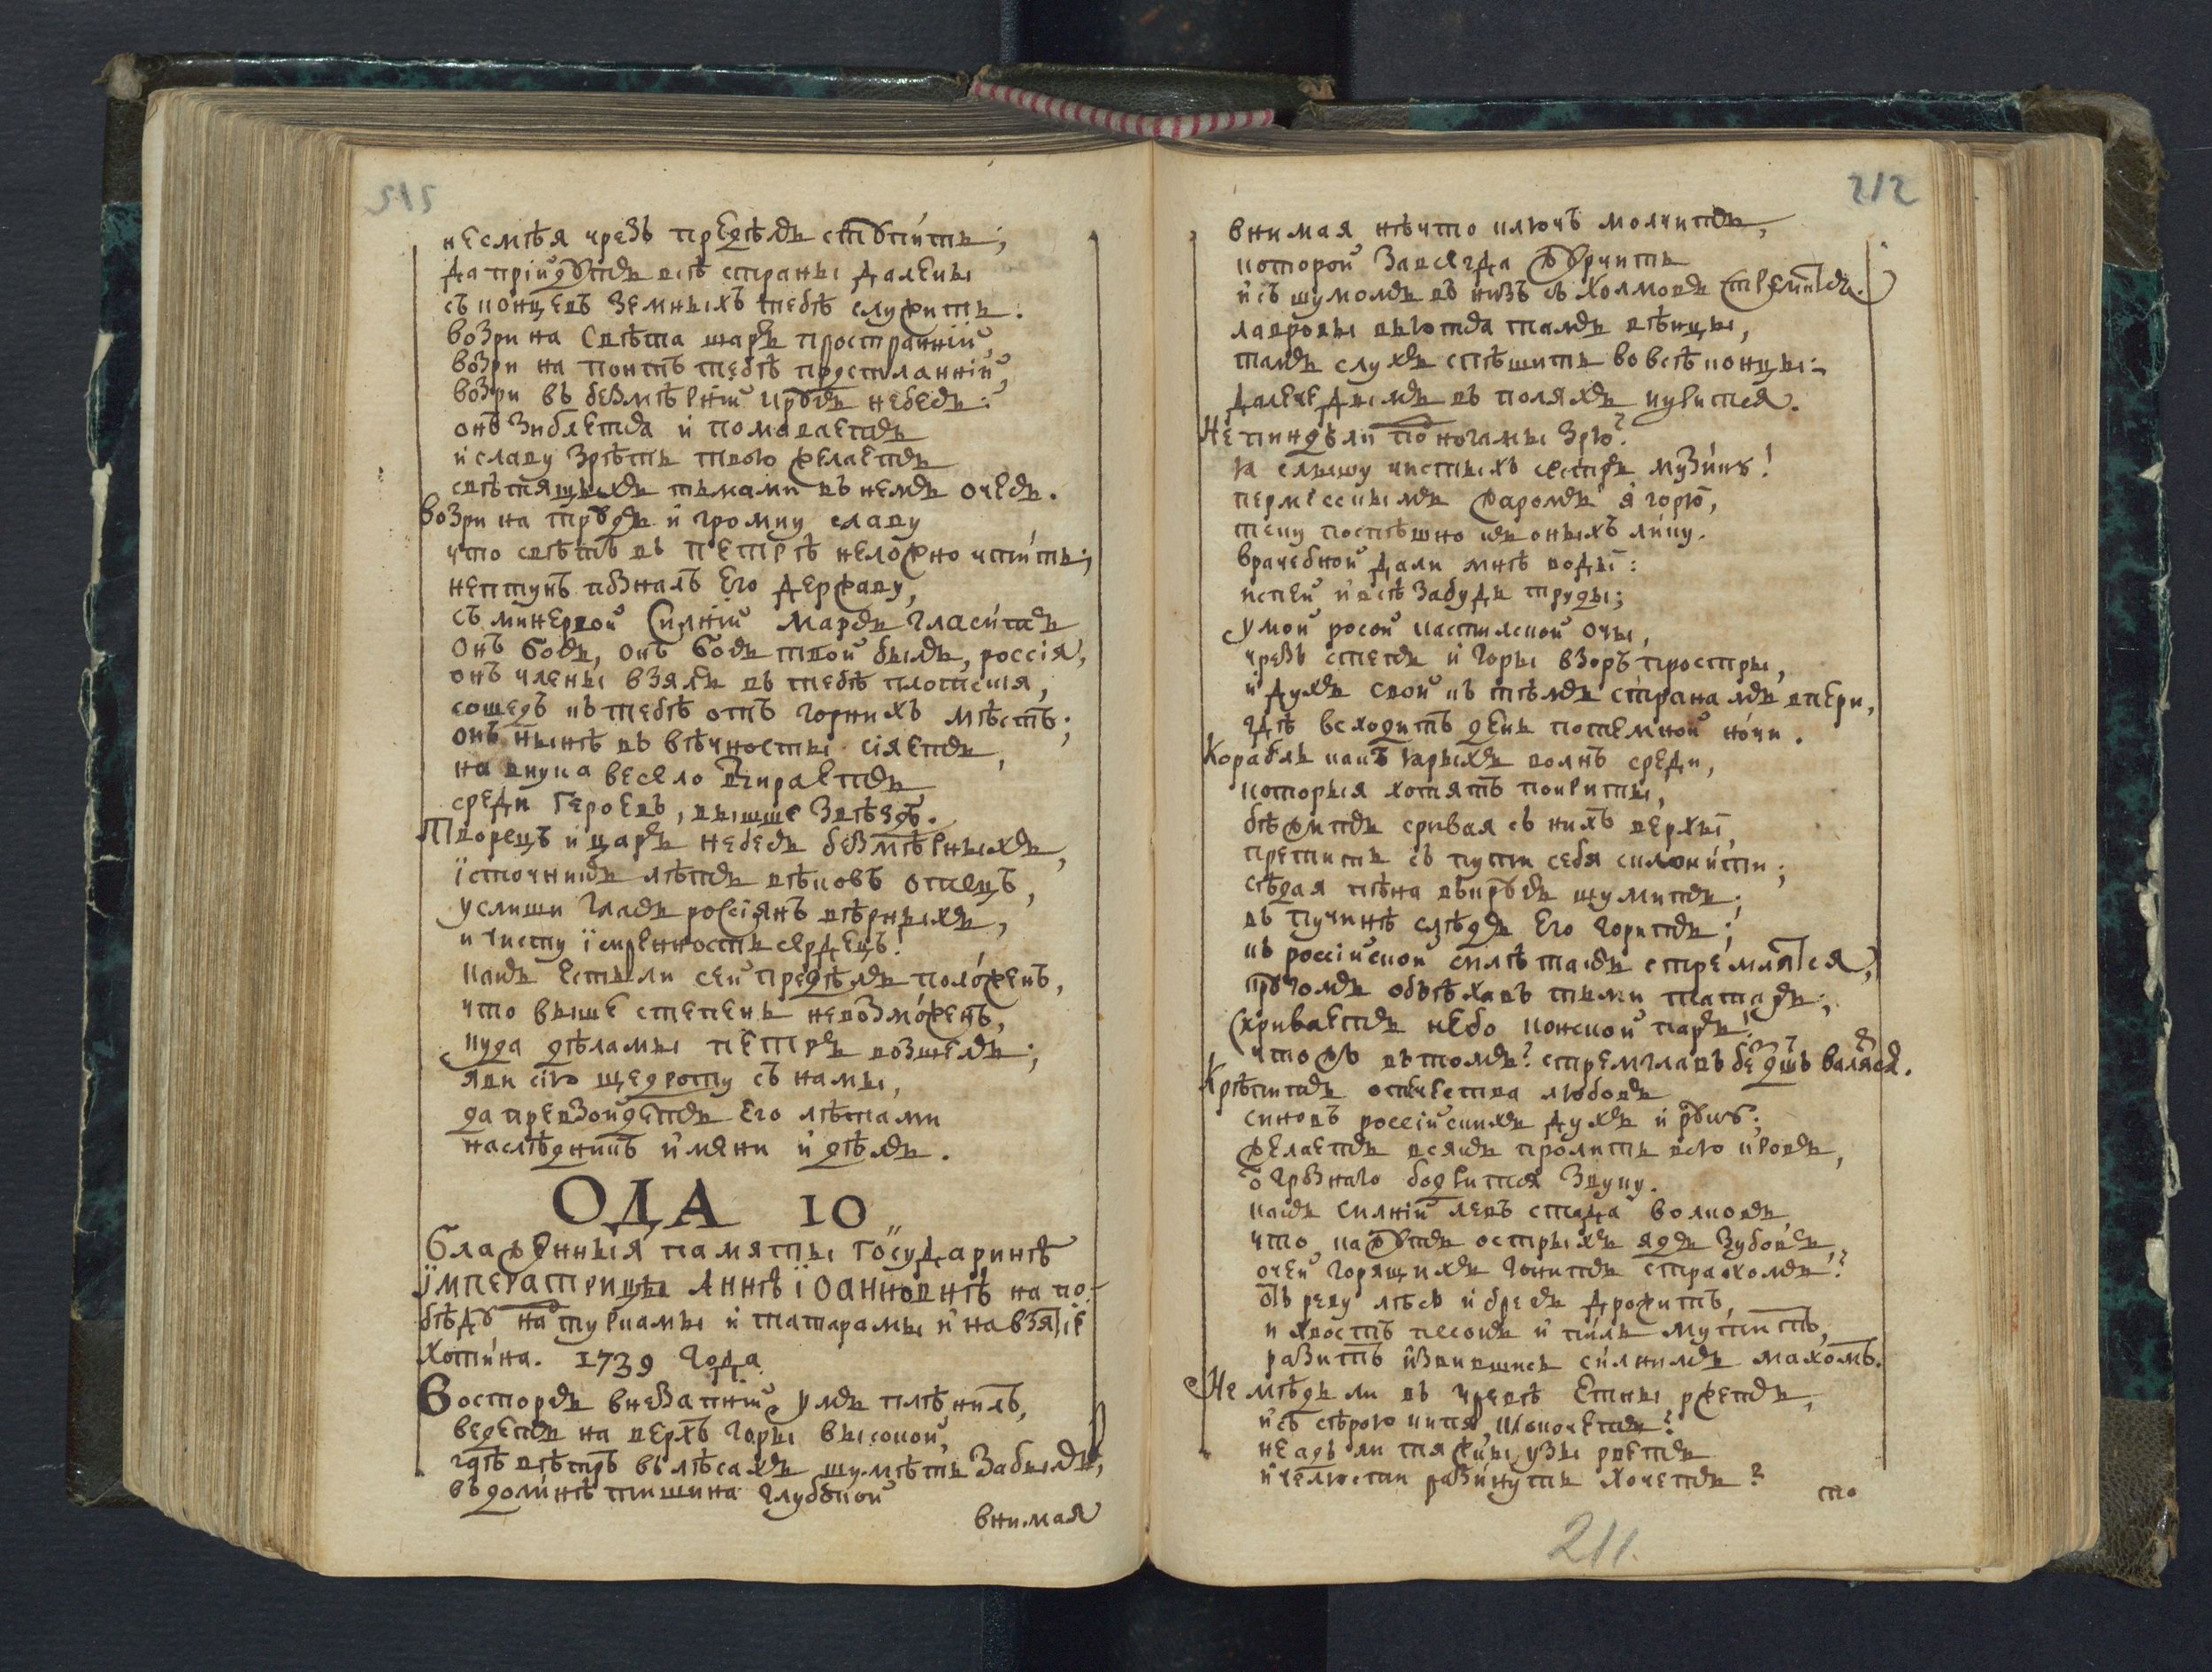 212
несмѣя чрезъ предѣлъ ступи́ть;
да прійдутъ всѣ страны далекы
съ концевъ земныхъ тебѣ служить.
возри на свѣта шаръ пространній,
возри на понтъ тебѣ простланній,
возри въ безмѣрній кругъ небесъ:
онъ зиблется и помаваетъ
и славу зрѣть твою желаетъ
свѣтящыхъ тьмами въ немъ очесъ.
возри на трудъ и громку славу
что свѣтъ въ Петрѣ неложно чти́ть;
нептунъ позналъ его державу,
съ минервой силній марсъ гласи́тъ
онъ богъ, онъ богъ твой былъ, россія,
онъ члены взялъ въ тебѣ плотския,
сошедъ къ тебѣ отъ горнихъ мѣстъ;
онъ нынѣ въ вѣчносты сіяетъ,
на внука весело взираетъ
среди героевъ, вышше звѣздъ.
Творецъ и царь небесъ безмѣрныхъ,
їсточникъ лѣтъ вѣковъ отецъ,
услиши гласъ россіянъ вѣрныхъ,
и чисту їскренность сердецъ!
какъ естьли сей предѣлъ поло́женъ,
что выше степень невозмо́женъ,
куда дѣламы Петръ возшелъ;
яви сію щедроту съ намы,
да превзойдетъ его лѣтами
наслѣдникъ и́мяни и дѣлъ.
ОДА 10
Блаженныя памяты государинѣ
їмператрицы Аннѣ їоанновнѣ на по-
бѣду на туркамы и татарамы и на взятіе
хоти́на. 1739 года.
Восторгъ внезапній умъ плѣнилъ,
ведетъ на верхъ горы высокой,
гдѣ вѣтръ въ лѣсахъ шумѣть забылъ,
въ доли́нѣ тишина глубокой
внимая
212
внимая нѣчто ключъ молчитъ,
которой завсегда журчитъ
и съ шумомъ въ низъ съ холмовъ стремится.
лавровы вьются тамъ вѣнцы,
тамъ слухъ спѣшитъ во всѣ концы:
далече дымъ въ поляхъ курится.
Не пиндъ ли по ногамы зрю?
я слышу чистыхъ сестръ музи́ку!
пермесскимъ жаромъ я горю,
теку поспѣшно къ оныхъ ли́ку.
врачебной дали мнѣ воды:
испей и всѣ забудь труды;
умой росой кастилской очы,
чрезъ степь и горы взоръ простры,
и духъ свой къ тѣмъ странамъ впери,
гдѣ всходитъ день потемной но́чи.
Корабль какъ ярыхъ волнъ среди,
которыя хотятъ покриты,
бѣжитъ сривая съ нихъ верхы,
претитъ съ пути себя склони́ти;
сѣдая пѣна вкругъ шумитъ,
въ пучинѣ слѣдъ его горитъ;
къ россійской силѣ такъ стремятся,
кругомъ объѣхавъ тьмы татаръ;
скриваетъ небо конской паръ!
что жъ въ томъ? стремглавъ безъ душъ валятся.
Крѣпитъ отечества любовь
синовъ россійскихъ духъ и руку;
желаетъ всякъ пролить всю кровь,
ѿ грознаго бодрится звуку.
какъ силній левъ стада волковъ,
что кажутъ острыхъ ядъ зубовъ,
очей горящихъ гонитъ страхомъ?
ѿ реву лѣсъ и брегъ дрожитъ,
и хвостъ песокъ и пилъ мутитъ,
разитъ извившись си́лнимъ махомъ.
Не мѣдь ли въ чревѣ Етны ржетъ,
и съ сѣрою кипя клокочетъ?
не адъ ли тяжкы узы рветъ
и челюсти рази́нуть хочетъ?
то
211.